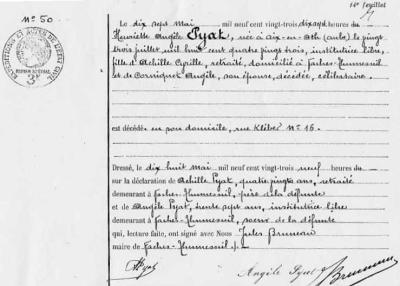 14e feuillet
No 50
EXPÉDITIONS ET ACTES DE L'ÉTAT CIVIL
3F
Le dix sept mai mil neuf cent vingt-trois dix sept heures du
Henriette Angèle Pyat, née à Aix-en-Oth (aube) le vingt
trois juillet mil huit cent quatre vingt trois, institutrice libre,
fille d'Achille Cyrille, retraité, domicilié à Faches-Thumesnil
et de Corniquet Angèle, son épouse, décédée, célibataire.
est décédée en son domicile, rue Kléber No 16.
Dressé, le dix huit mai mil neuf cent vingt-trois neuf heures du
sur la déclaration de Achille Pyat, quatre vingts ans, retraité
demeurant à Faches-Thumesnil, père de la défunte
et de Angèle Pyat, trente sept ans, institutrice libre
demeurant à Faches-Thumesnil, soeur de la défunte
qui, lecture faite, ont signé avec Nous Jules Bruneau
maire de Faches-Thumesnil ./.
APyat
Angèle Pyat
Bruneau